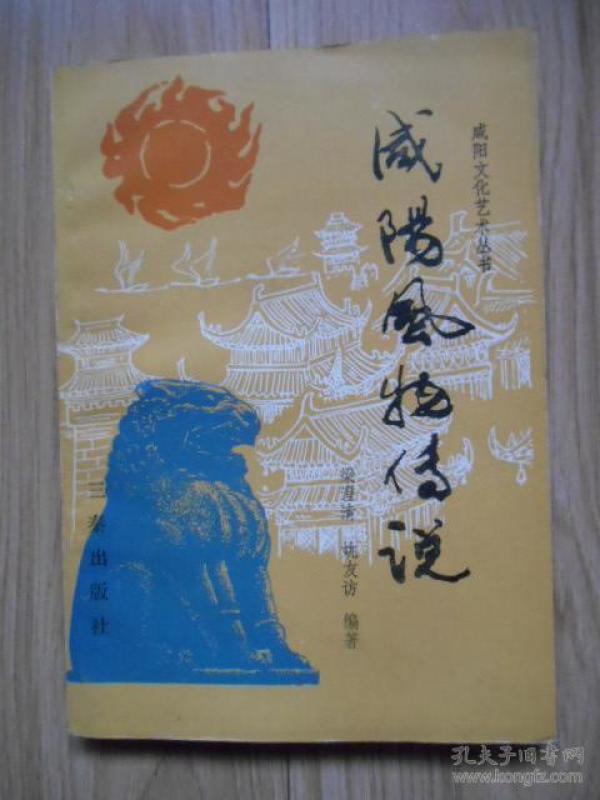 咸阳文化艺术丛书
咸陽風物傳说
梁澄清 沈友访 编著
三秦出版社
孔夫子旧书网
www.kongfz.com